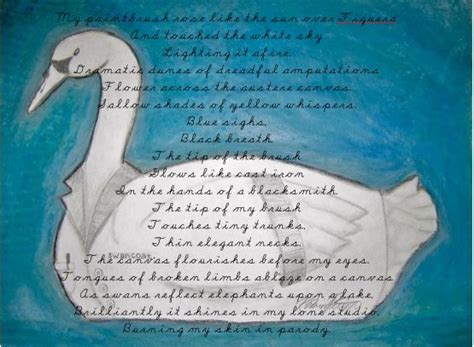 My paintbrush rose like the sun over Figuera
And touched the white sky
Lighting it afire.
Dramatic dunes of dreadful amputations
Flower across the austere canvas.
Sallow shades of yellow whispers.
Blue sighs,
Black breath
The tip of the brush
Glows like cast iron
In the hands of a blacksmith
The tip of my brush
Touches tiny trunks,
Thin elegant necks.
The canvas flourishes before my eyes.
swancoat
Tongues of broken limbs ablaze on a canvas
As swans reflect elephants upon a lake.
Brilliantly it shines in my lone studio.
Burning my skin in parody.